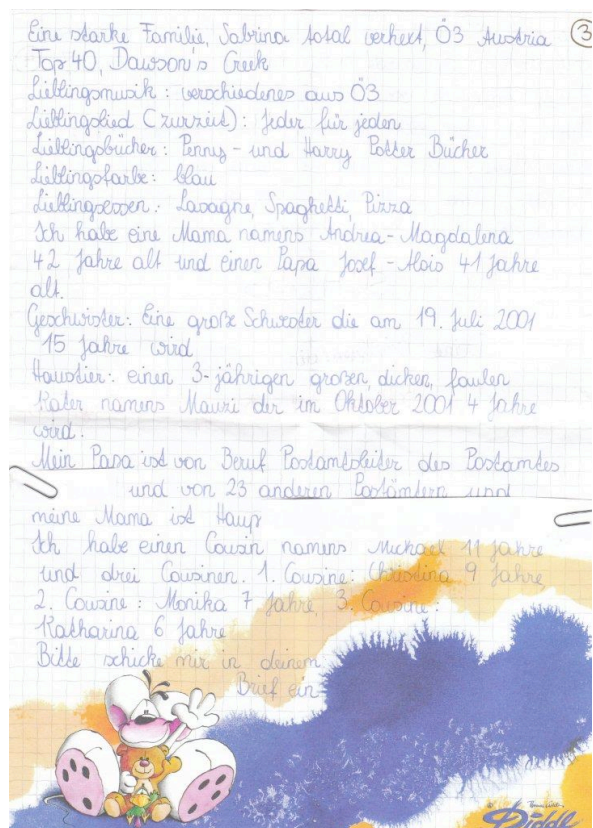 Eine starke Familie, Sabrina total verhext, Ö3 Austria
③
Top 40, Dawson's Creek
Lieblingsmusik: verschiedenes aus Ö3
Lieblingslied (zurzeit): Jeder für jeden
Lieblingsbücher: Penny- und Harry Potter Bücher
Lieblingsfarbe: blau
Lieblingsessen: Lasagne, Spaghetti, Pizza
Ich habe eine Mama namens Andrea-Magdalena
42 Jahre alt und einen Papa Josef-Alois 41 Jahre
alt.
Geschwister: Eine große Schwester die am 19. Juli 2001
15 Jahre wird
Haustier: einen 3-jährigen großen, dicken, faulen
Kater namens Mauri der im Oktober 2001 4 Jahre
wird.
Mein Papa ist von Beruf Postamtsleiter des Postamtes
und von 23 anderen Postämtern und
meine Mama ist Haup
Ich habe einen Cousin namens Michael 11 Jahre
und drei Cousinen. 1. Cousine: Christina 9 Jahre
2. Cousine: Monika 7 Jahre, 3. Cousine:
Katharina 6 Jahre
Bitte schicke mir in deinem
Brief ein
Diddl